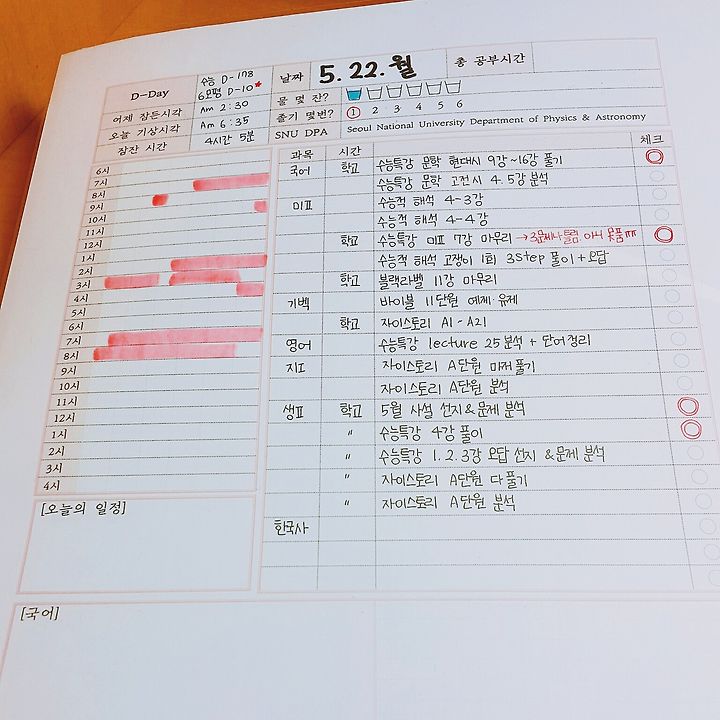 D-Day 수능 D-178 날짜 5. 22. 월 총 공부시간
6모평 D-10
물 몇 잔?
어제 잠든시각 Am 2:30 줄기 몇번? 1 2 3 4 5 6
오늘 기상시각 Am 6:35 SNU DPA Seoul National University Department of Physics & Astronomy
잠잔 시간 4시간 5분
과목 시간 체크
6시
7시
8시
9시
10시
11시
12시
1시
2시
3시
4시
5시
6시
7시
8시
9시
10시
11시
12시
1시
2시
3시
4시
국어 학교 수능특강 문학 현대시 9강~16강 풀기
수능특강 문학 고전시 4. 5강 분석
미II 수능적 해석 4-3강
수능적 해석 4-4강
학교 수능특강 미II 7강 마무리 → 3문제나 틀림. 아니 못품ㅠㅠ
수능적 해석 고쟁이 1회 3step 풀이 + 오답
학교 블랙라벨 11강 마무리
기벡 바이블 11단원 예제·유제
학교 자이스토리 A1 - A21
영어 수능특강 lecture 25 분석 + 단어정리
지I 자이스토리 A단원 마저 풀기
자이스토리 A단원 분석
생II 학교 5월 사설 선지&문제 분석
〃 수능특강 4강 풀이
〃 수능특강 1. 2. 3강 오답 선지 &문제 분석
〃 자이스토리 A단원 다 풀기
〃 자이스토리 A단원 분석
한국사
[오늘의 일정]
[국어]